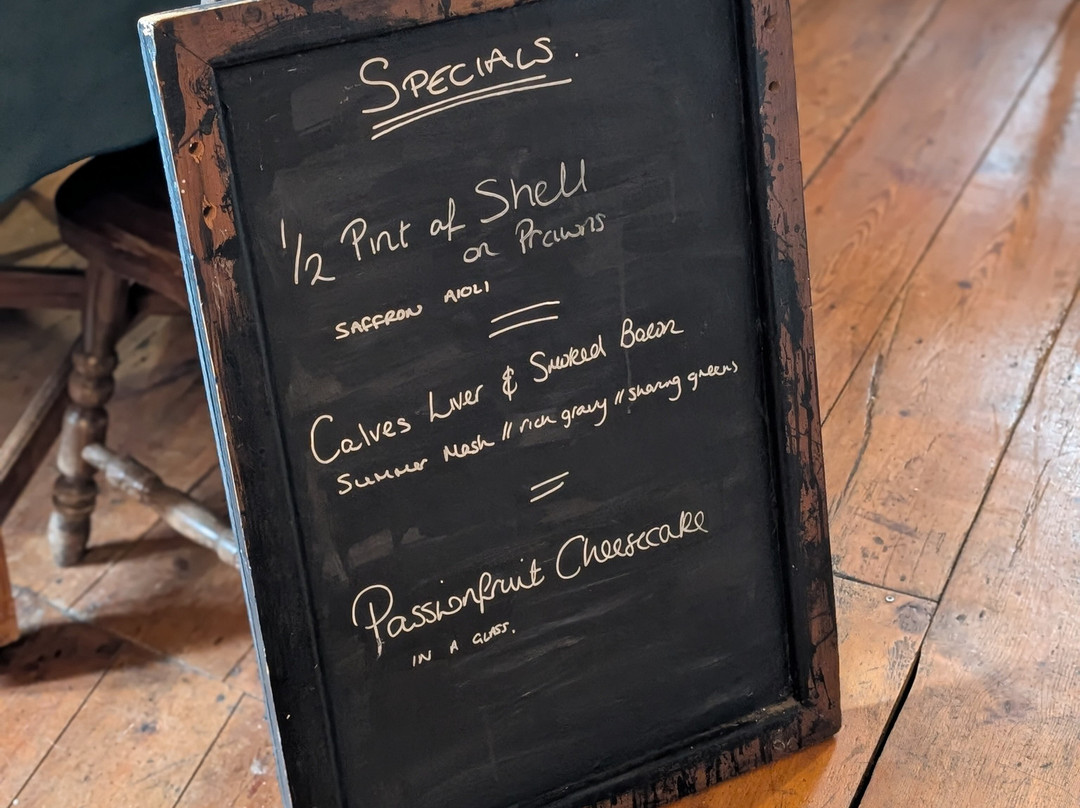 SPECIALS.
1/2 Pint of Shell
on Prawns
SAFFRON AIOLI
Calves Liver & Smoked Bacon
Summer Mash // rich gravy // sharing greens
Passionfruit Cheesecake
IN A GLASS.